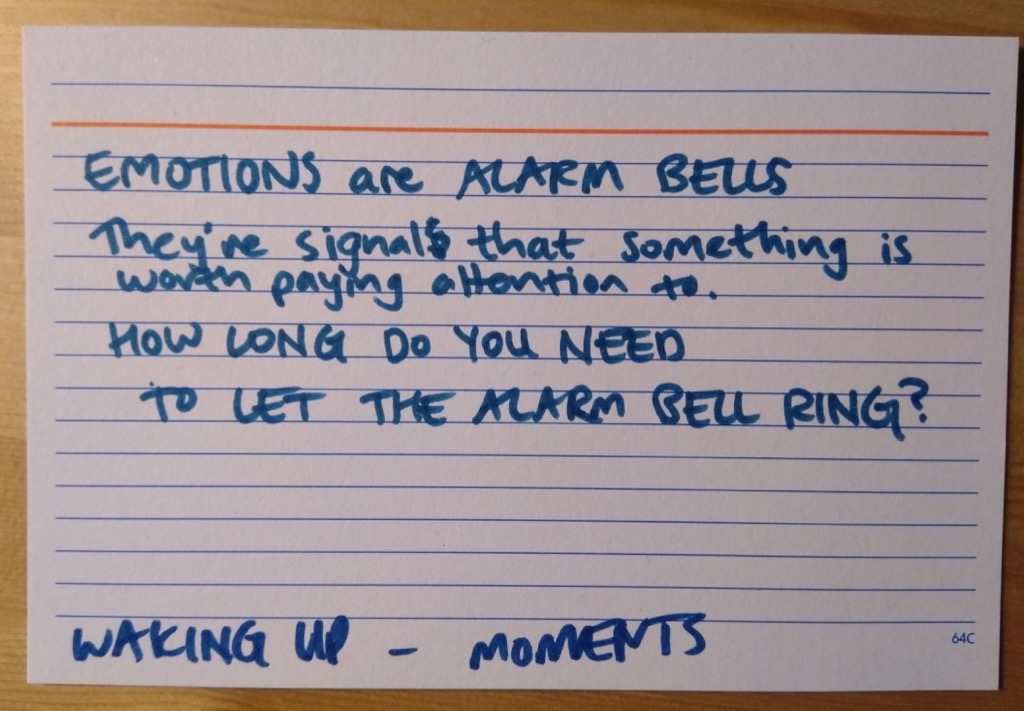 EMOTIONS are ALARM BELLS
They're signals that something is
worth paying attention to.
HOW LONG DO YOU NEED
TO LET THE ALARM BELL RING?
WAKING UP - MOMENTS
64C